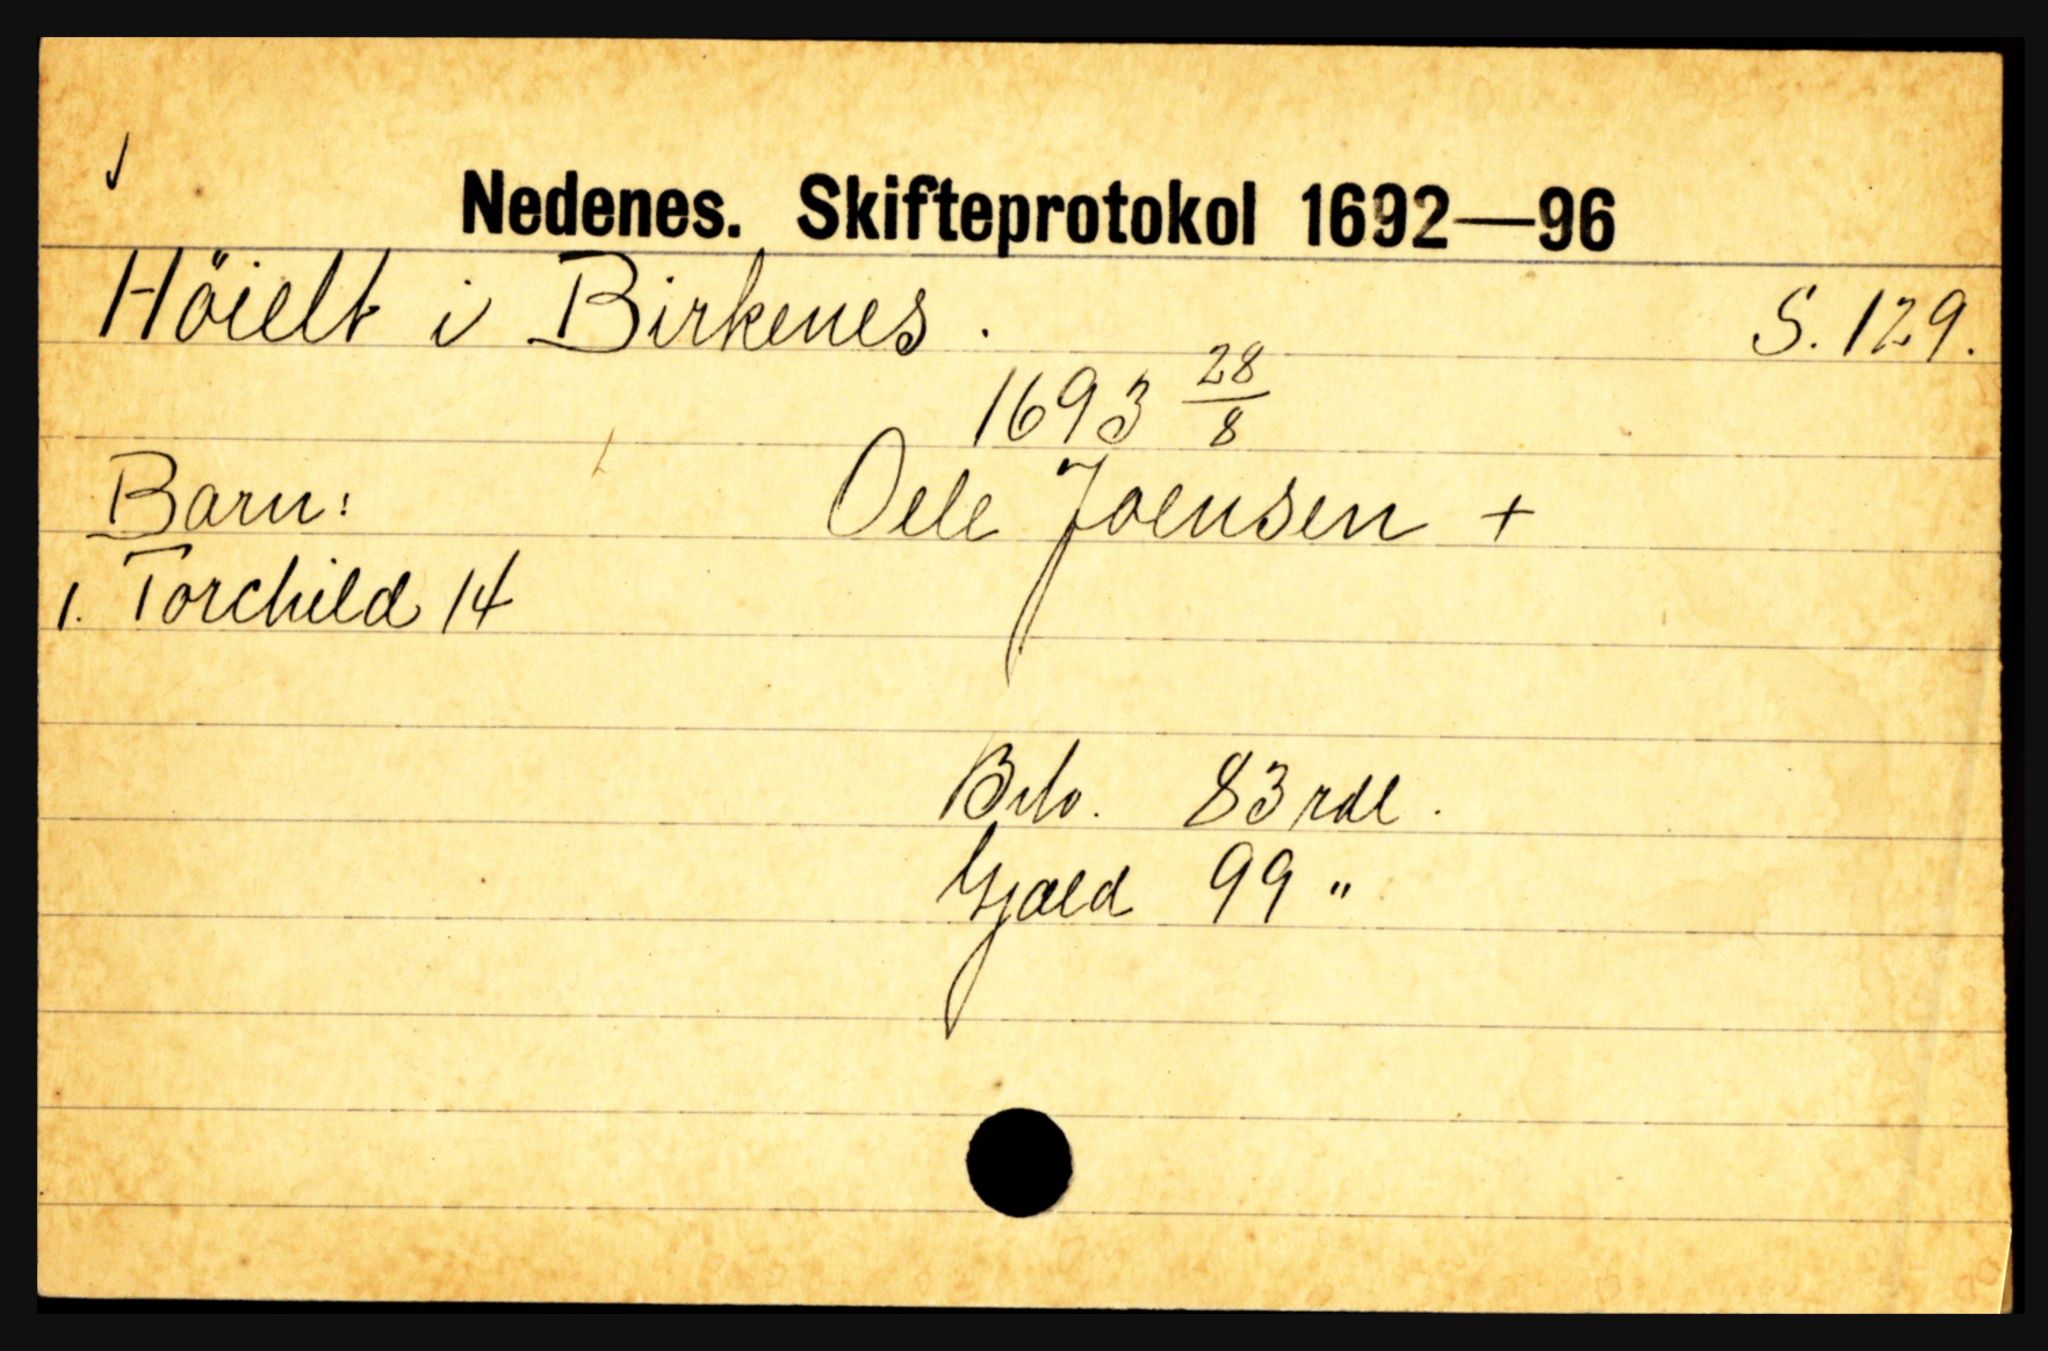 Nedenes. Skifteprotokol 1692—96
Höielt i Birkenes. S. 129.
1693 28/8
Barn: Oele Joensen +
1. Torchild 14
Brto. 83 rdl.
Gjæld 99 "